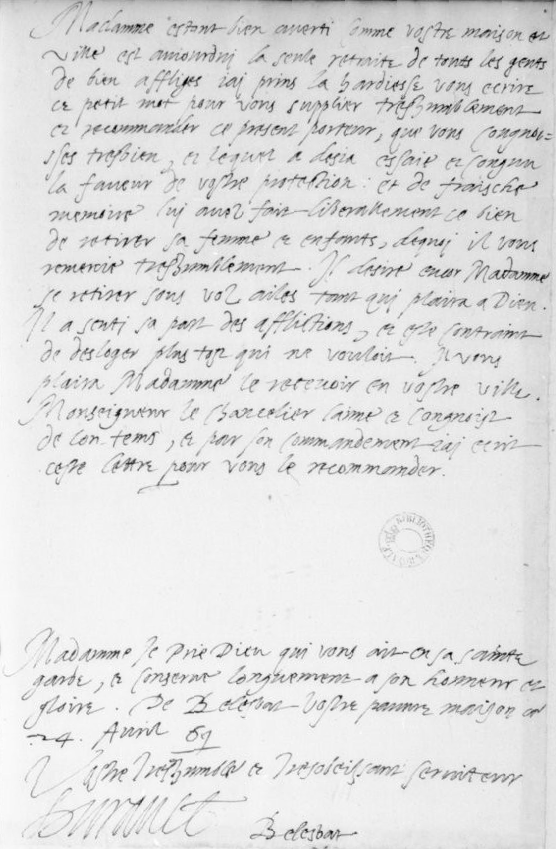 Madamme estant bien averti comme vostre maison et
ville est aujourdhui la seule retraite de touts les gents
de bien affliges iai prins la hardiesse vous ecrire
ce petit mot pour vous supplier treshumblement
et recommander ce present porteur, que vous congnois-
sses tresbien, et lequel a desia essaie et congnu
la faveur de vostre protection : et de fraische
memoire lui avez fait liberallement ce bien
de retirer sa femme et enfants, dequoj il vous
remercie treshumblement. Il desire encor Madamme
se retirer sous voz ailes tant qui plaira a Dieu.
Il a senti sa part des afflictions, et este contraint
de desloger plus tost qui ne vouloit. Il vous
plaira Madamme le recevoir en vostre ville.
Monseigneur le chancelier laime et congnoist
de lon tems, et par son commandement iai ecrit
ceste lettre pour vous le recommander.
Madamme Je Prie Dieu qui vous ait en sa sainte
garde, et conserve longuement a son honneur et
gloire. De Belesbat vostre pauvre maison ce
24. Avril 69
Vostre treshumble et tresobeissant serviteur
Hurault
Belesbat